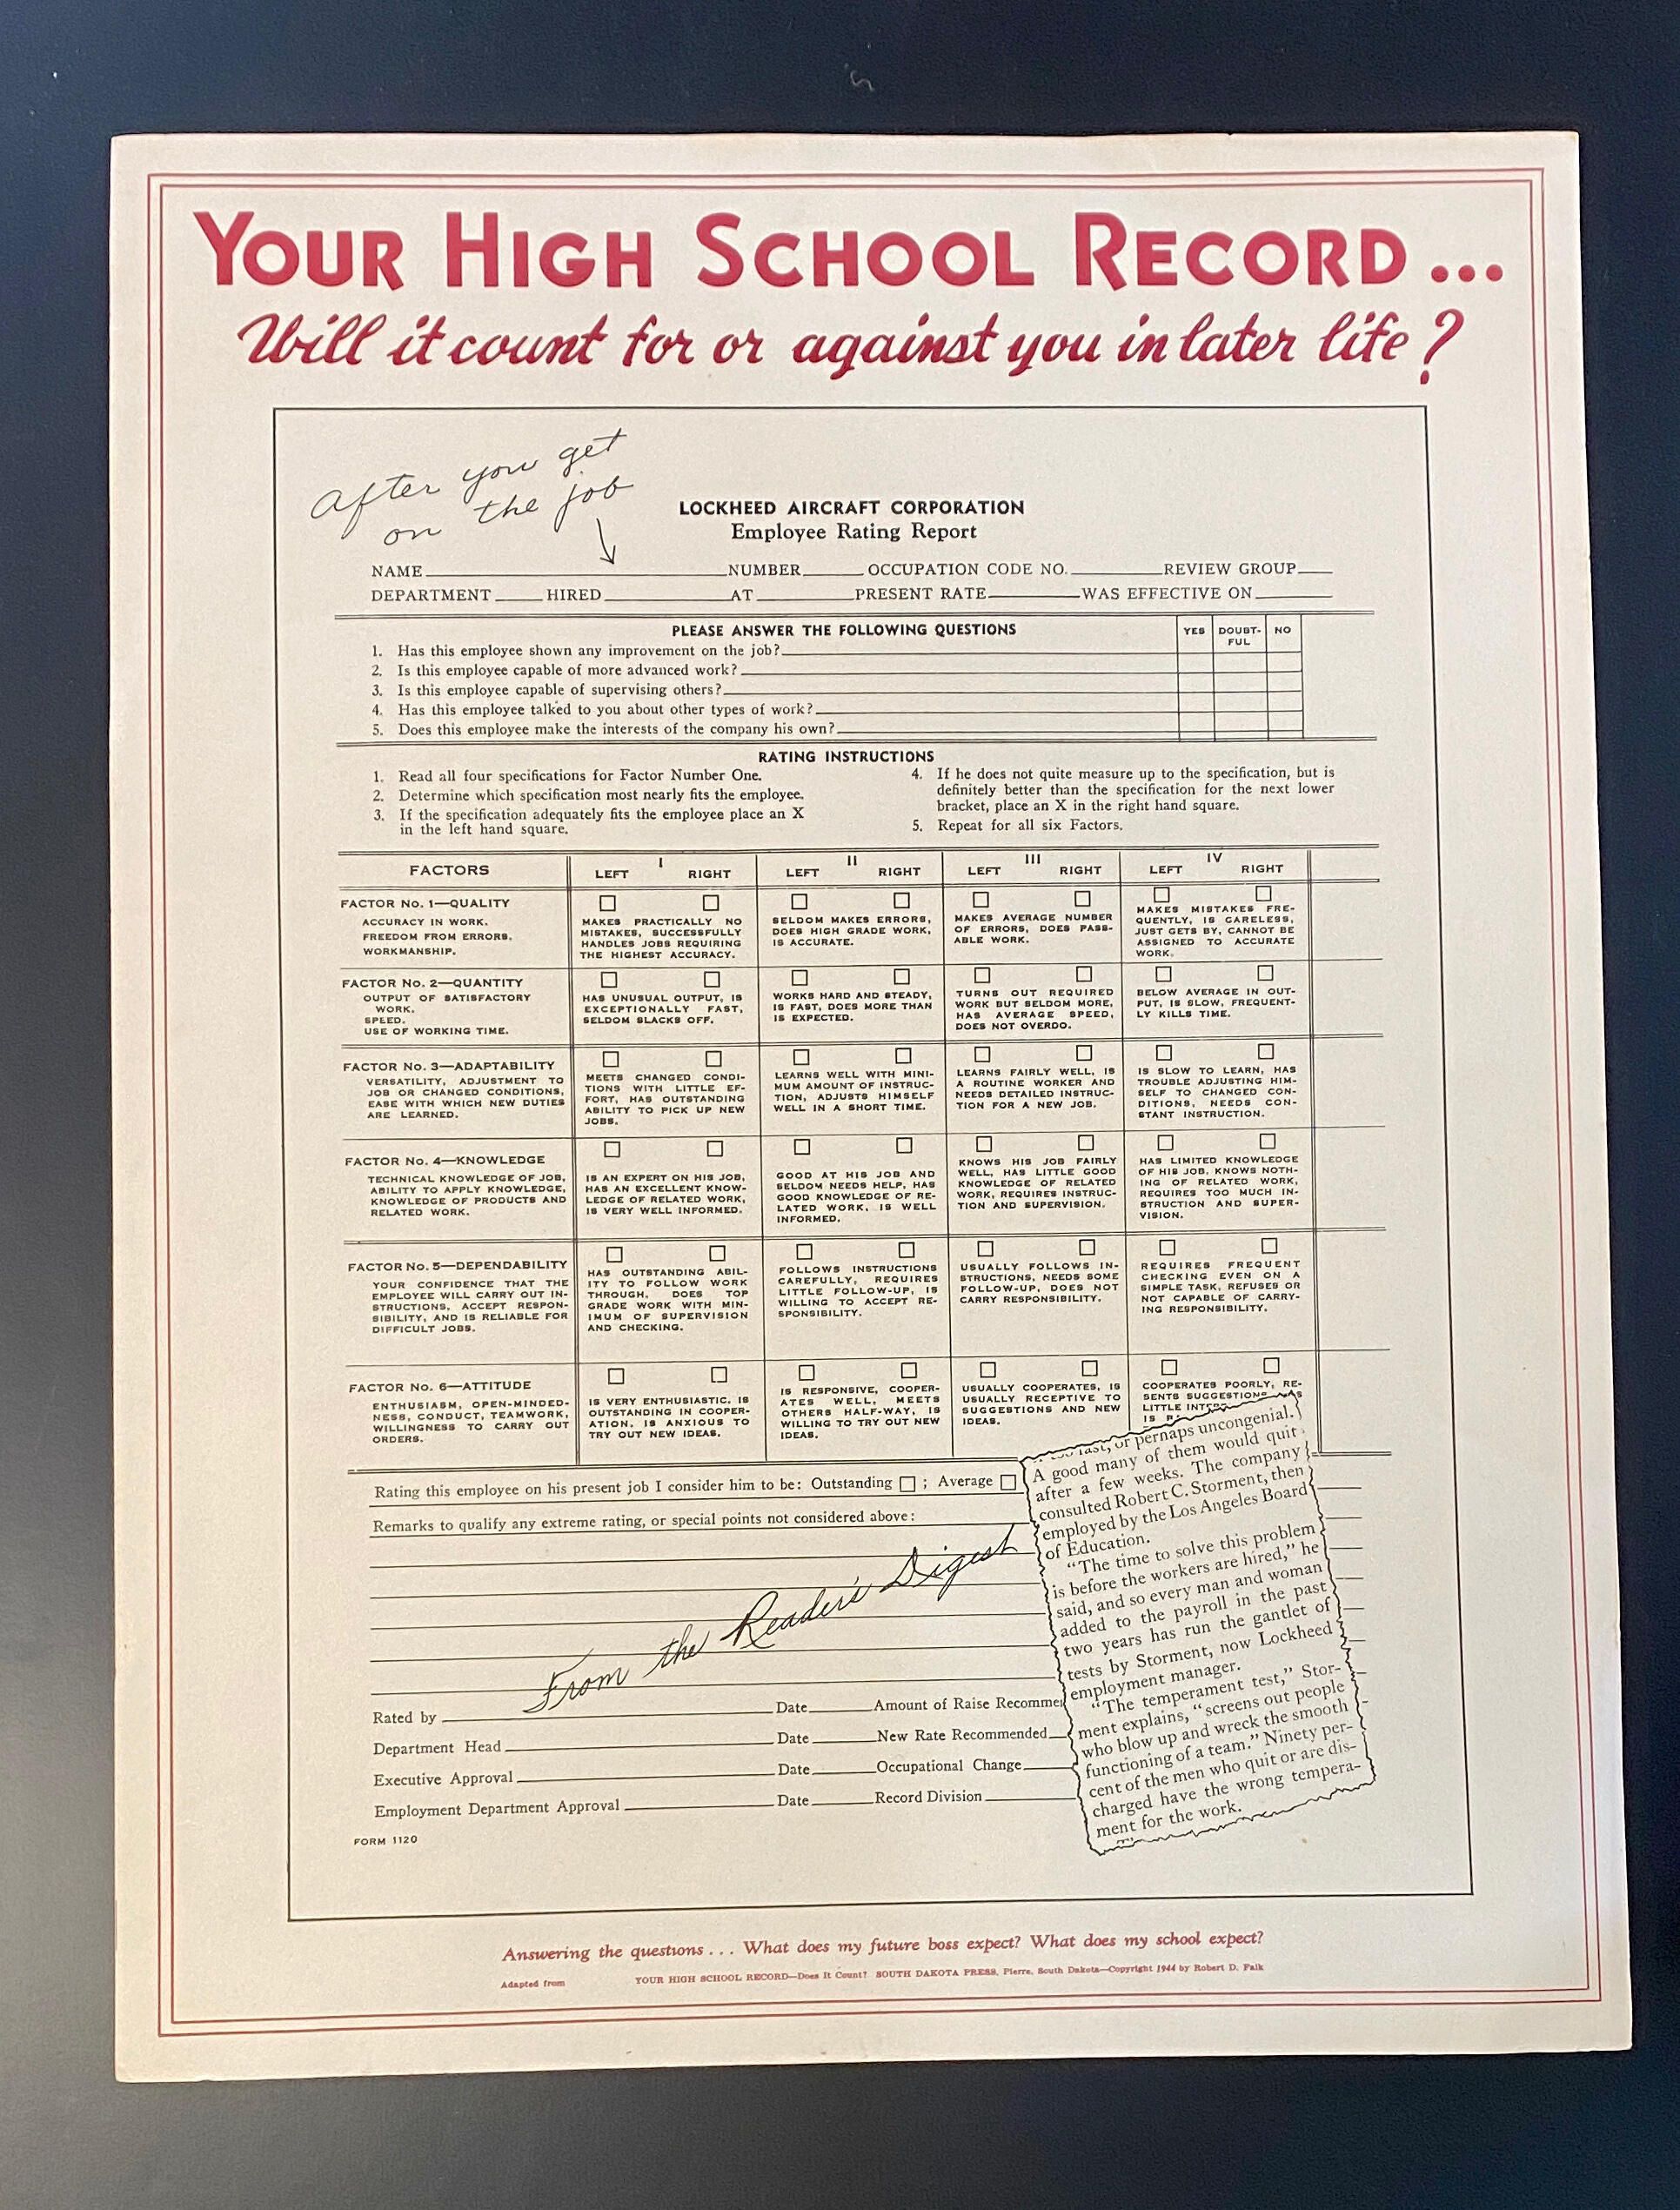 YOUR HIGH SCHOOL RECORD...
Will it count for or against you in later life?
After you get
on the job
LOCKHEED AIRCRAFT CORPORATION
Employee Rating Report
NAME NUMBER OCCUPATION CODE NO. REVIEW GROUP
DEPARTMENT HIRED AT PRESENT RATE WAS EFFECTIVE ON
PLEASE ANSWER THE FOLLOWING QUESTIONS
YES DOUBT- NO
FUL
1. Has this employee shown any improvement on the job?
2. Is this employee capable of more advanced work?
3. Is this employee capable of supervising others?
4. Has this employee talked to you about other types of work?
5. Does this employee make the interests of the company his own?
RATING INSTRUCTIONS
1. Read all four specifications for Factor Number One.
2. Determine which specification most nearly fits the employee.
3. If the specification adequately fits the employee place an X
in the left hand square.
4. If he does not quite measure up to the specification, but is
definitely better than the specification for the next lower
bracket, place an X in the right hand square.
5. Repeat for all six Factors.
FACTORS
I
LEFT RIGHT
II
LEFT RIGHT
III
LEFT RIGHT
IV
LEFT RIGHT
FACTOR No. 1—QUALITY
ACCURACY IN WORK.
FREEDOM FROM ERRORS.
WORKMANSHIP.
MAKES PRACTICALLY NO
MISTAKES, SUCCESSFULLY
HANDLES JOBS REQUIRING
THE HIGHEST ACCURACY.
SELDOM MAKES ERRORS,
DOES HIGH GRADE WORK,
IS ACCURATE.
MAKES AVERAGE NUMBER
OF ERRORS, DOES PASS-
ABLE WORK.
MAKES MISTAKES FRE-
QUENTLY, IS CARELESS,
JUST GETS BY, CANNOT BE
ASSIGNED TO ACCURATE
WORK.
FACTOR No. 2—QUANTITY
OUTPUT OF SATISFACTORY
WORK.
SPEED.
USE OF WORKING TIME.
HAS UNUSUAL OUTPUT, IS
EXCEPTIONALLY FAST,
SELDOM SLACKS OFF.
WORKS HARD AND STEADY,
IS FAST, DOES MORE THAN
IS EXPECTED.
TURNS OUT REQUIRED
WORK BUT SELDOM MORE,
HAS AVERAGE SPEED,
DOES NOT OVERDO.
BELOW AVERAGE IN OUT-
PUT, IS SLOW, FREQUENT-
LY KILLS TIME.
FACTOR No. 3—ADAPTABILITY
VERSATILITY, ADJUSTMENT TO
JOB OR CHANGED CONDITIONS,
EASE WITH WHICH NEW DUTIES
ARE LEARNED.
MEETS CHANGED CONDI-
TIONS WITH LITTLE EF-
FORT, HAS OUTSTANDING
ABILITY TO PICK UP NEW
JOBS.
LEARNS WELL WITH MINI-
MUM AMOUNT OF INSTRUC-
TION, ADJUSTS HIMSELF
WELL IN A SHORT TIME.
LEARNS FAIRLY WELL, IS
A ROUTINE WORKER AND
NEEDS DETAILED INSTRUC-
TION FOR A NEW JOB.
IS SLOW TO LEARN, HAS
TROUBLE ADJUSTING HIM-
SELF TO CHANGED CON-
DITIONS, NEEDS CON-
STANT INSTRUCTION.
FACTOR No. 4—KNOWLEDGE
TECHNICAL KNOWLEDGE OF JOB,
ABILITY TO APPLY KNOWLEDGE,
KNOWLEDGE OF PRODUCTS AND
RELATED WORK.
IS AN EXPERT ON HIS JOB,
HAS AN EXCELLENT KNOW-
LEDGE OF RELATED WORK,
IS VERY WELL INFORMED.
GOOD AT HIS JOB AND
SELDOM NEEDS HELP, HAS
GOOD KNOWLEDGE OF RE-
LATED WORK, IS WELL
INFORMED.
KNOWS HIS JOB FAIRLY
WELL, HAS LITTLE GOOD
KNOWLEDGE OF RELATED
WORK, REQUIRES INSTRUC-
TION AND SUPERVISION.
HAS LIMITED KNOWLEDGE
OF HIS JOB, KNOWS NOTH-
ING OF RELATED WORK,
REQUIRES TOO MUCH IN-
STRUCTION AND SUPER-
VISION.
FACTOR No. 5—DEPENDABILITY
YOUR CONFIDENCE THAT THE
EMPLOYEE WILL CARRY OUT IN-
STRUCTIONS, ACCEPT RESPON-
SIBILITY, AND IS RELIABLE FOR
DIFFICULT JOBS.
HAS OUTSTANDING ABIL-
ITY TO FOLLOW WORK
THROUGH, DOES TOP
GRADE WORK WITH MIN-
IMUM OF SUPERVISION
AND CHECKING.
FOLLOWS INSTRUCTIONS
CAREFULLY, REQUIRES
LITTLE FOLLOW-UP, IS
WILLING TO ACCEPT RE-
SPONSIBILITY.
USUALLY FOLLOWS IN-
STRUCTIONS, NEEDS SOME
FOLLOW-UP, DOES NOT
CARRY RESPONSIBILITY.
REQUIRES FREQUENT
CHECKING EVEN ON A
SIMPLE TASK, REFUSES OR
NOT CAPABLE OF CARRY-
ING RESPONSIBILITY.
FACTOR No. 6—ATTITUDE
ENTHUSIASM, OPEN-MINDED-
NESS, CONDUCT, TEAMWORK,
WILLINGNESS TO CARRY OUT
ORDERS.
IS VERY ENTHUSIASTIC, IS
OUTSTANDING IN COOPER-
ATION, IS ANXIOUS TO
TRY OUT NEW IDEAS.
IS RESPONSIVE, COOPER-
ATES WELL, MEETS
OTHERS HALF-WAY, IS
WILLING TO TRY OUT NEW
IDEAS.
USUALLY COOPERATES, IS
USUALLY RECEPTIVE TO
SUGGESTIONS AND NEW
IDEAS.
COOPERATES POORLY, RE-
SENTS SUGGESTIONS
LITTLE
IS
Rating this employee on his present job I consider him to be: Outstanding ; Average
Remarks to qualify any extreme rating, or special points not considered above:
From the Reader's Digest
fast, or perhaps uncongenial.
A good many of them would quit
after a few weeks. The company
consulted Robert C. Storment, then
employed by the Los Angeles Board
of Education.
"The time to solve this problem
is before the workers are hired," he
said, and so every man and woman
added to the payroll in the past
two years has run the gantlet of
tests by Storment, now Lockheed
employment manager.
"The temperament test," Stor-
ment explains, "screens out people
who blow up and wreck the smooth
functioning of a team." Ninety per-
cent of the men who quit or are dis-
charged have the wrong tempera-
ment for the work.
Rated by Date Amount of Raise Recomme
Department Head Date New Rate Recommended
Executive Approval Date Occupational Change
Employment Department Approval Date Record Division
FORM 1120
Answering the questions... What does my future boss expect? What does my school expect?
Adapted from YOUR HIGH SCHOOL RECORD—Does It Count? SOUTH DAKOTA PRESS, Pierre, South Dakota—Copyright 1944 by Robert D. Falk